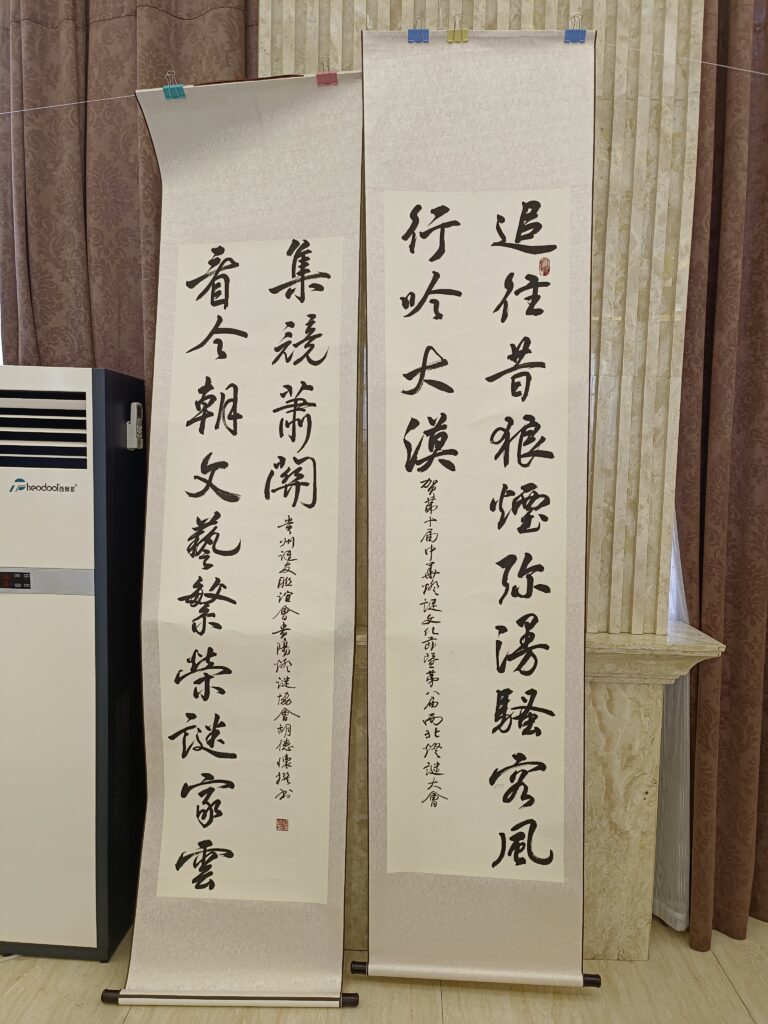 追往昔狼煙弥漫騷客風
行吟大漠
賀第十届中華燈謎文化節暨第八届西北燈謎大會
看今朝文藝繁榮謎家雲
集競蕭關
貴州謎友聯誼會貴陽燈謎協會胡德懷撰书